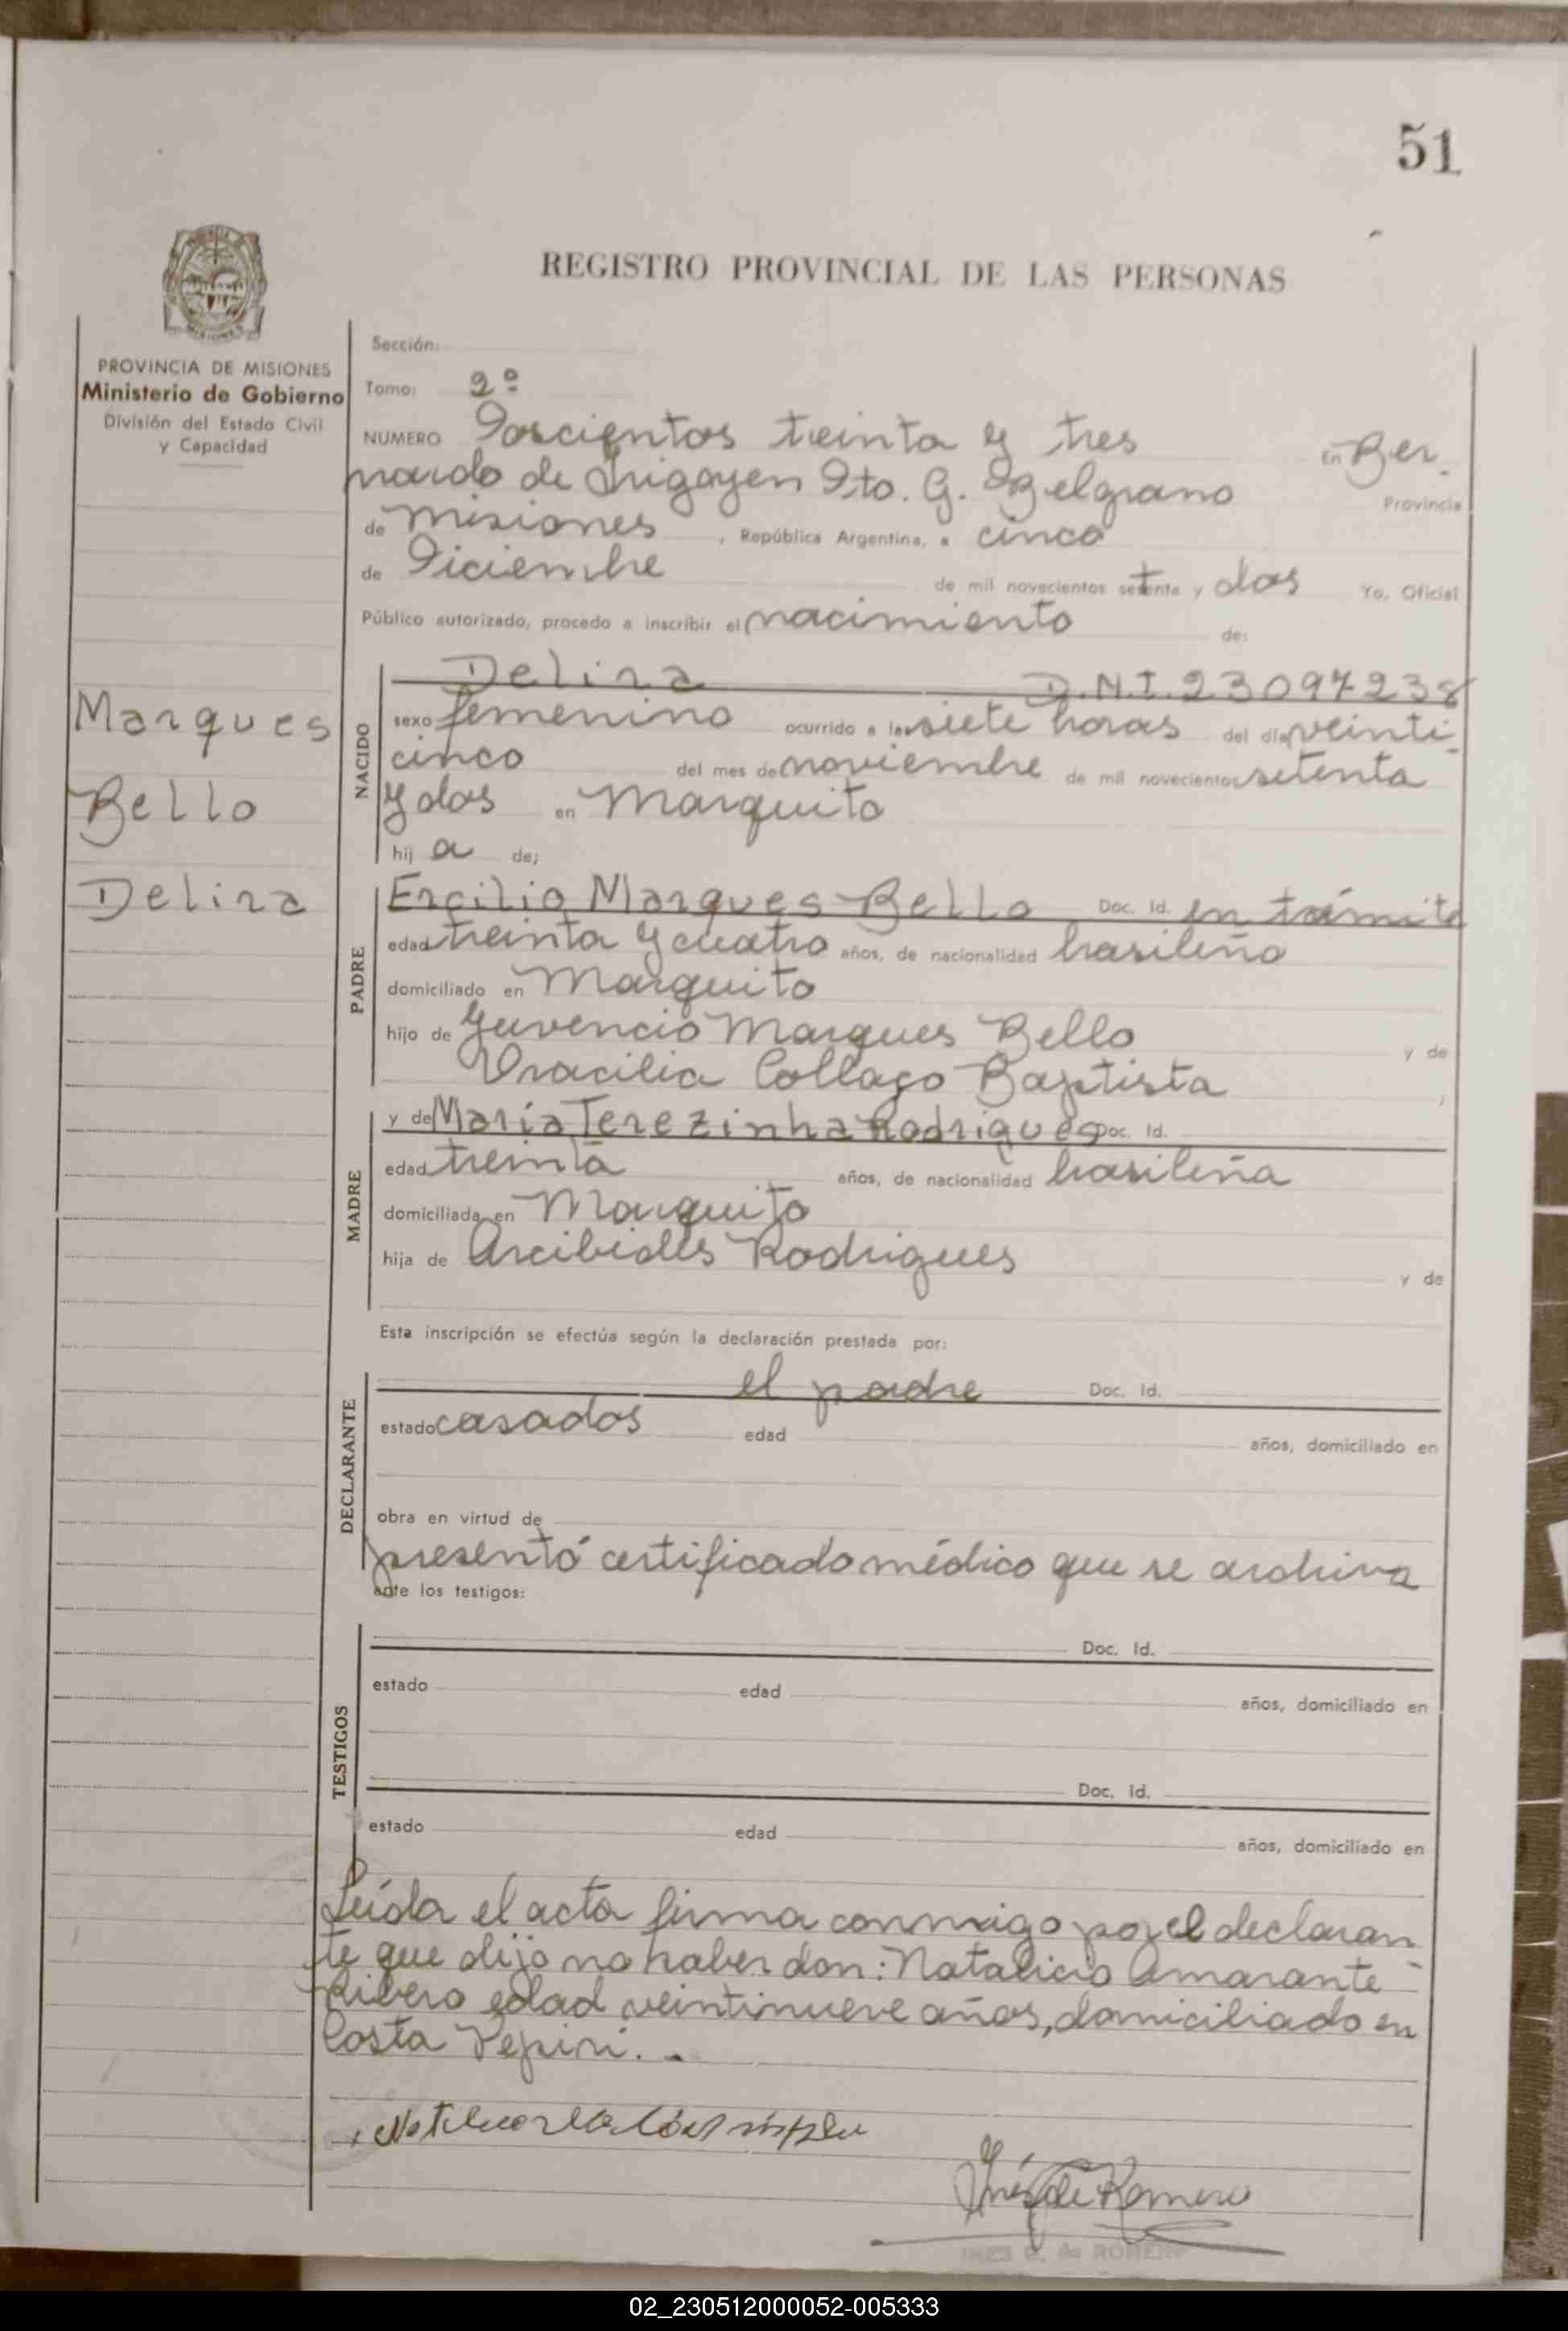 51
REGISTRO PROVINCIAL DE LAS PERSONAS
PROVINCIA DE MISIONES
Ministerio de Gobierno
División del Estado Civil
y Capacidad
Marques
Bello
Delira
Sección:
Tomo: 2º
NUMERO Doscientos treinta y tres En Ber-
nardo de Irigoyen Dto. G. Belgrano Provincia
de Misiones, República Argentina, a cinco
de Diciembre de mil novecientos setenta y dos Yo, Oficial
Público autorizado, procedo a inscribir el nacimiento de:
NACIDO
Delira D.N.I. 23097238
sexo femenino ocurrido a las siete horas del día veinti-
cinco del mes de noviembre de mil novecientos setenta
y dos en Marquito
hij a de;
PADRE
Ercilio Marques Bello Doc. Id. en trámite
edad treinta y cuatro años, de nacionalidad brasileño
domiciliado en Marquito
hijo de Juvencio Marques Bello y de
Collaço Baptista
MADRE
y de María Terezinha Rodrigues Doc. Id.
edad treinta años, de nacionalidad brasileña
domiciliada en Marquito
hija de Arcibides Rodrigues y de
Esta inscripción se efectúa según la declaración prestada por:
DECLARANTE
el padre Doc. Id.
estado casados edad años, domiciliado en
obra en virtud de
presentó certificado médico que se archiva
ante los testigos:
TESTIGOS
Doc. Id.
estado edad años, domiciliado en
Doc. Id.
estado edad años, domiciliado en
Leída el acta firma conmigo por el declaran-
te que dijo no haber don: Natalicio Amarante
Ribero edad veintinueve años, domiciliado en
Costa Pepiri. -
Inés de Romero
INES G. de ROMERO
02_230512000052-005333